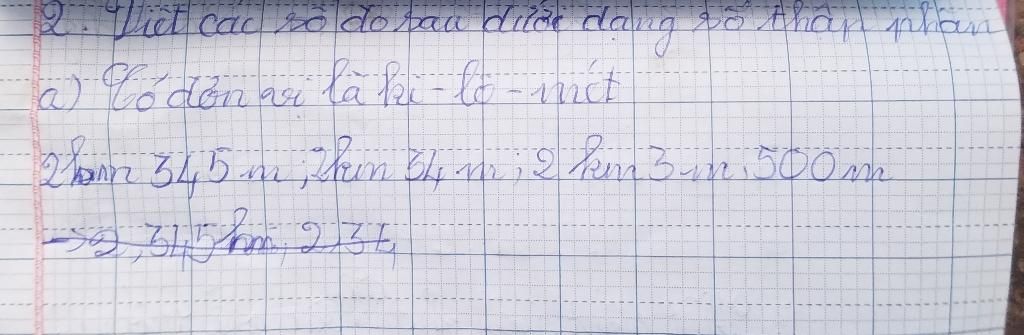 2. Viết các số đo sau dưới dạng số thập phân
a) Có đơn vị là ki-lô-mét
2km 345m; 2km 34m; 2km 3m; 500m
→ 2,345km, 2,34